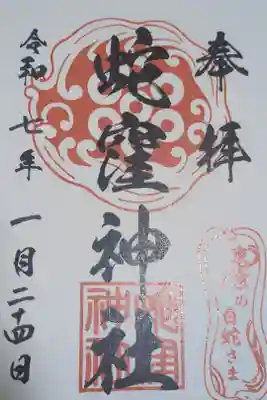 奉拝
東京の白蛇さま
蛇窪神社
蛇窪神社
令和七年一月二十四日